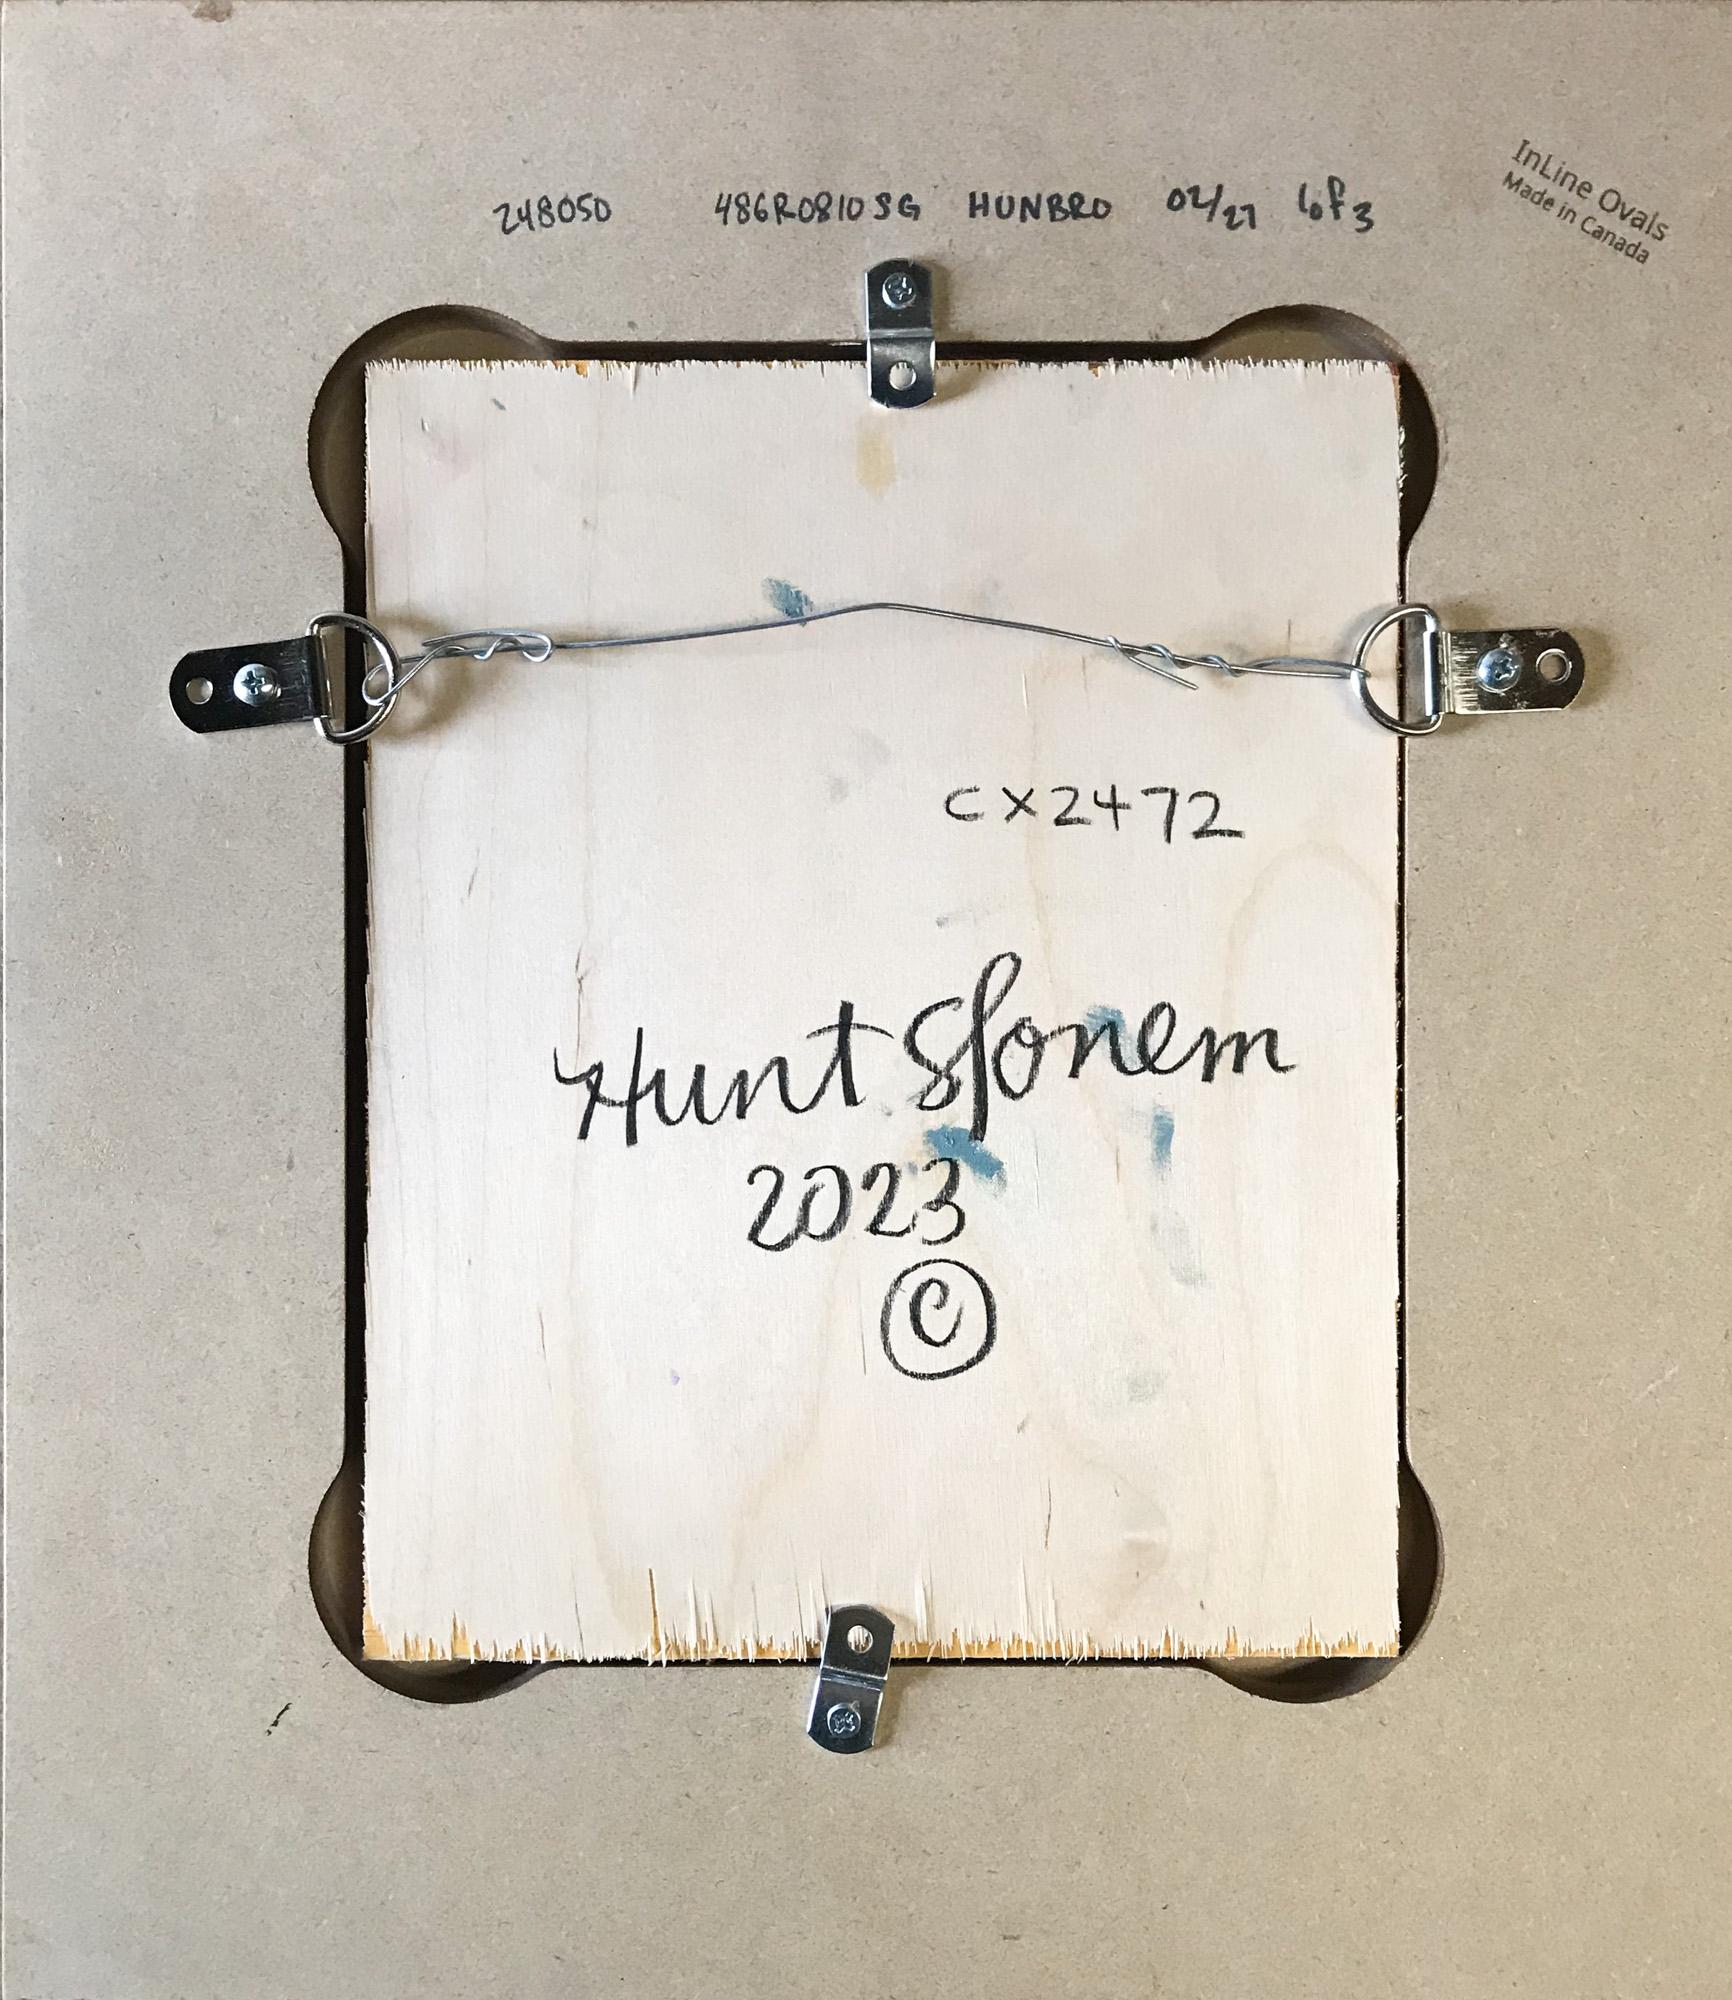 248050 486R0810SG HUNBRO 02/27 1 of 3
InLine Ovals
Made in Canada
CX2472
Hunt Slonem
2023
©